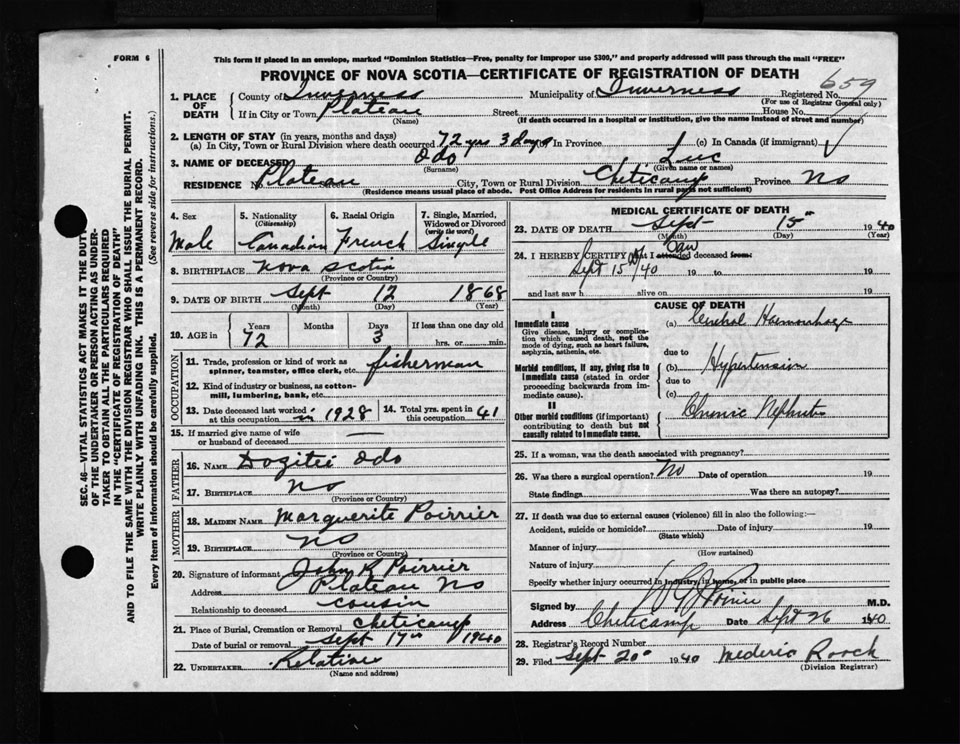 FORM 6
This form if placed in an envelope, marked "Dominion Statistics—Free, penalty for improper use $300," and properly addressed will pass through the mail "FREE"
PROVINCE OF NOVA SCOTIA—CERTIFICATE OF REGISTRATION OF DEATH
659
1. PLACE OF DEATH
County of Inverness Municipality of Inverness Registered No.
(For use of Registrar General only)
If in City or Town Plateau Street House No.
(Name) (If death occurred in a hospital or institution, give the name instead of street and number)
2. LENGTH OF STAY (in years, months and days)
(a) In City, Town or Rural Division where death occurred 72 yrs 3 days In Province (c) In Canada (if immigrant)
3. NAME OF DECEASED Odo Luc
(Surname) (Given name or names)
RESIDENCE No. Plateau City, Town or Rural Division Cheticamp Province NS
(Residence means usual place of abode. Post Office Address for residents in rural parts not sufficient)
4. Sex
Male
5. Nationality
(Citizenship)
Canadian
6. Racial Origin
French
7. Single, Married, Widowed or Divorced
(write the word)
Single
8. BIRTHPLACE Nova Scotia
(Province or Country)
9. DATE OF BIRTH Sept 12 1868
(Month) (Day) (Year)
10. AGE in Years Months Days If less than one day old
72 3 hrs. or min.
OCCUPATION
11. Trade, profession or kind of work as
spinner, teamster, office clerk, etc. fisherman
12. Kind of industry or business, as cotton-
mill, lumbering, bank, etc.
13. Date deceased last worked
at this occupation in 1928
14. Total yrs. spent in
this occupation 41
15. If married give name of wife
or husband of deceased —
FATHER
16. NAME Dozitei Odo
17. BIRTHPLACE NS
(Province or Country)
MOTHER
18. MAIDEN NAME Marguerite Poirrier
19. BIRTHPLACE NS
(Province or Country)
20. Signature of informant John K Poirrier
Address Plateau NS
Relationship to deceased cousin
21. Place of Burial, Cremation or Removal Cheticamp
Date of burial or removal Sept 17th 1940
22. UNDERTAKER Relatives
(Name and address)
MEDICAL CERTIFICATE OF DEATH
23. DATE OF DEATH Sept 15th 1940
(Month) (Day) (Year)
24. I HEREBY CERTIFY that I attended deceased from: Saw
Sept 15/40 19 to 19
and last saw h alive on 19
CAUSE OF DEATH
I
Immediate cause
Give disease, injury or complication which caused death, not the mode of dying, such as heart failure, asphyxia, asthenia, etc.
(a) Cerebral Haemorrhage
due to
Morbid conditions, if any, giving rise to immediate cause (stated in order proceeding backwards from immediate cause).
(b) Hypertension
due to
(c)
II
Other morbid conditions (if important) contributing to death but not causally related to immediate cause.
Chronic Nephritis
25. If a woman, was the death associated with pregnancy?
26. Was there a surgical operation? No Date of operation 19
State findings Was there an autopsy?
27. If death was due to external causes (violence) fill in also the following:—
Accident, suicide or homicide? Date of injury 19
(State which)
Manner of injury
(How sustained)
Nature of injury
Specify whether injury occurred in industry, in home, or in public place
Signed by M.D.
Address Cheticamp Date Sept 26 1940
28. Registrar's Record Number
29. Filed Sept 20th 1940 Mederic Roach
(Division Registrar)
SEC. 46—VITAL STATISTICS ACT MAKES IT THE DUTY
OF THE UNDERTAKER OR PERSON ACTING AS UNDER-
TAKER TO OBTAIN ALL THE PARTICULARS REQUIRED
IN THE "CERTIFICATE OF REGISTRATION OF DEATH"
AND TO FILE THE SAME WITH THE DIVISION REGISTRAR WHO SHALL ISSUE THE BURIAL PERMIT.
WRITE PLAINLY WITH UNFADING INK. THIS IS A PERMANENT RECORD.
Every item of information should be carefully supplied. (See reverse side for instructions.)